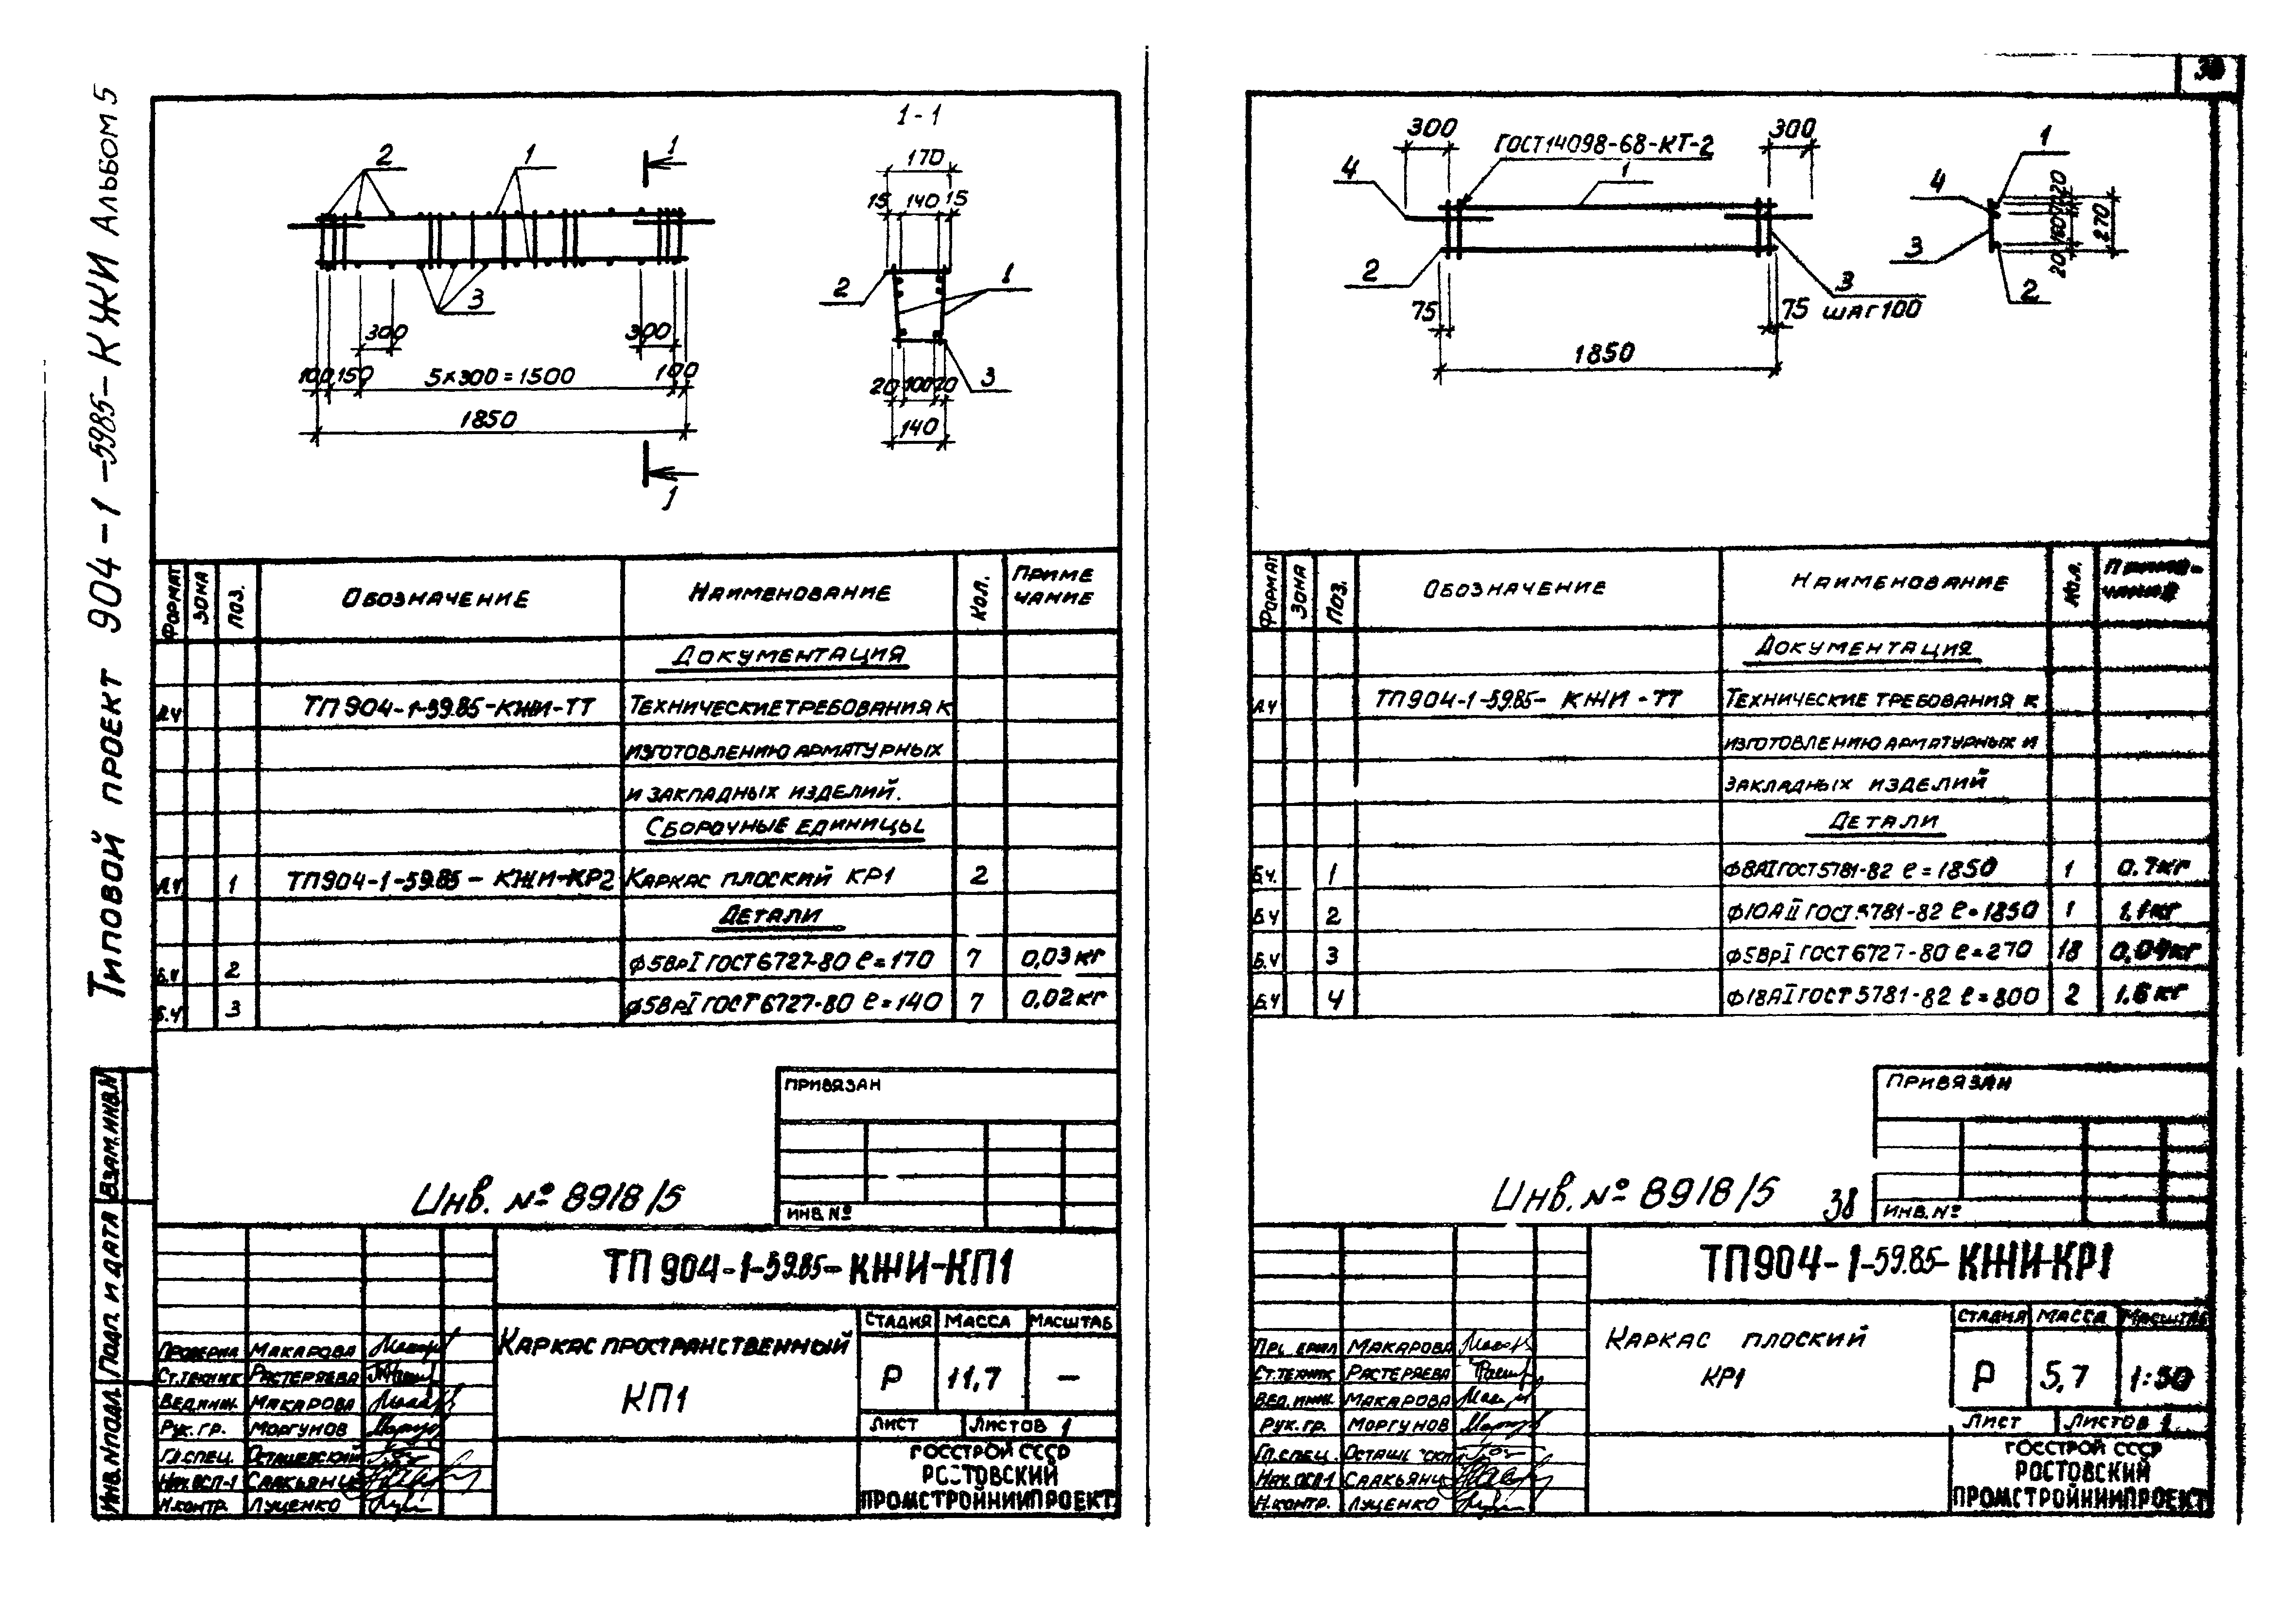 Типовой проект 904-1-5985-КЖИ Альбом 5
1-1
2
1
1
170
15
140
15
2
1
3
300
300
100
150
5×300=1500
100
1850
1
20
100
20
3
140
Формат
Зона
Поз.
Обозначение
Наименование
Кол.
Примечание
Документация
А4 ТП 904-1-59.85-КЖИ-ТТ Технические требования к
изготовлению арматурных
и закладных изделий.
Сборочные единицы
А4 1 ТП904-1-59.85-КЖИ-КР2 Каркас плоский КР1 2
Детали
Б.Ч 2 ϕ5ВрI ГОСТ 6727-80 ℓ=170 7 0,03кг
Б.Ч 3 ϕ5ВрI ГОСТ 6727-80 ℓ=140 7 0,02кг
Привязан
Инв. №
Инв. № 8918/5
Взам.инв.N
Подп. и дата
Инв. №подл.
ТП 904-1-59.85-КЖИ-КП1
Проверил Макарова
Ст.техник Растеряева
Вед.инж. Макарова
Рук. гр. Моргунов
Гл.спец. Осташевский
Нач.ОСП-1 Саакьянц
Н.контр. Луценко
Каркас пространственный
КП1
Стадия Масса Масштаб
Р 11,7 —
Лист Листов 1
Госстрой СССР
Ростовский
Промстройниипроект
300
ГОСТ14098-68-КТ-2
300
4
1
2
75
75
3
шаг 100
1850
1
4
3
2
20
20
270
Формат
Зона
Поз.
Обозначение
Наименование
Кол.
Примечание
Документация
А4 ТП904-1-59.85-КЖИ-ТТ Технические требования к
изготовлению арматурных и
закладных изделий
Детали
Б.Ч. 1 ϕ8АI ГОСТ 5781-82 ℓ=1850 1 0.7кг
Б.Ч 2 ϕ10АII ГОСТ 5781-82 ℓ=1850 1 1.1кг
Б.Ч 3 ϕ5ВрI ГОСТ 6727-80 ℓ=270 18 0,04кг
Б.Ч 4 ϕ18АI ГОСТ 5781-82 ℓ=800 2 1.6кг
Привязан
Инв. №
Инв. № 8918/5 38
ТП904-1-59.85-КЖИ-КР1
Макарова
Ст.техник Растеряева
Вед.инж. Макарова
Рук.гр. Моргунов
Гл.спец.
Нач.ОСП-1 Саакьянц
Н.контр. Луценко
Каркас плоский
КР1
Стадия Масса Масштаб
Р 5,7
Лист Листов 1
Госстрой СССР
Ростовский
Промстройниипроект